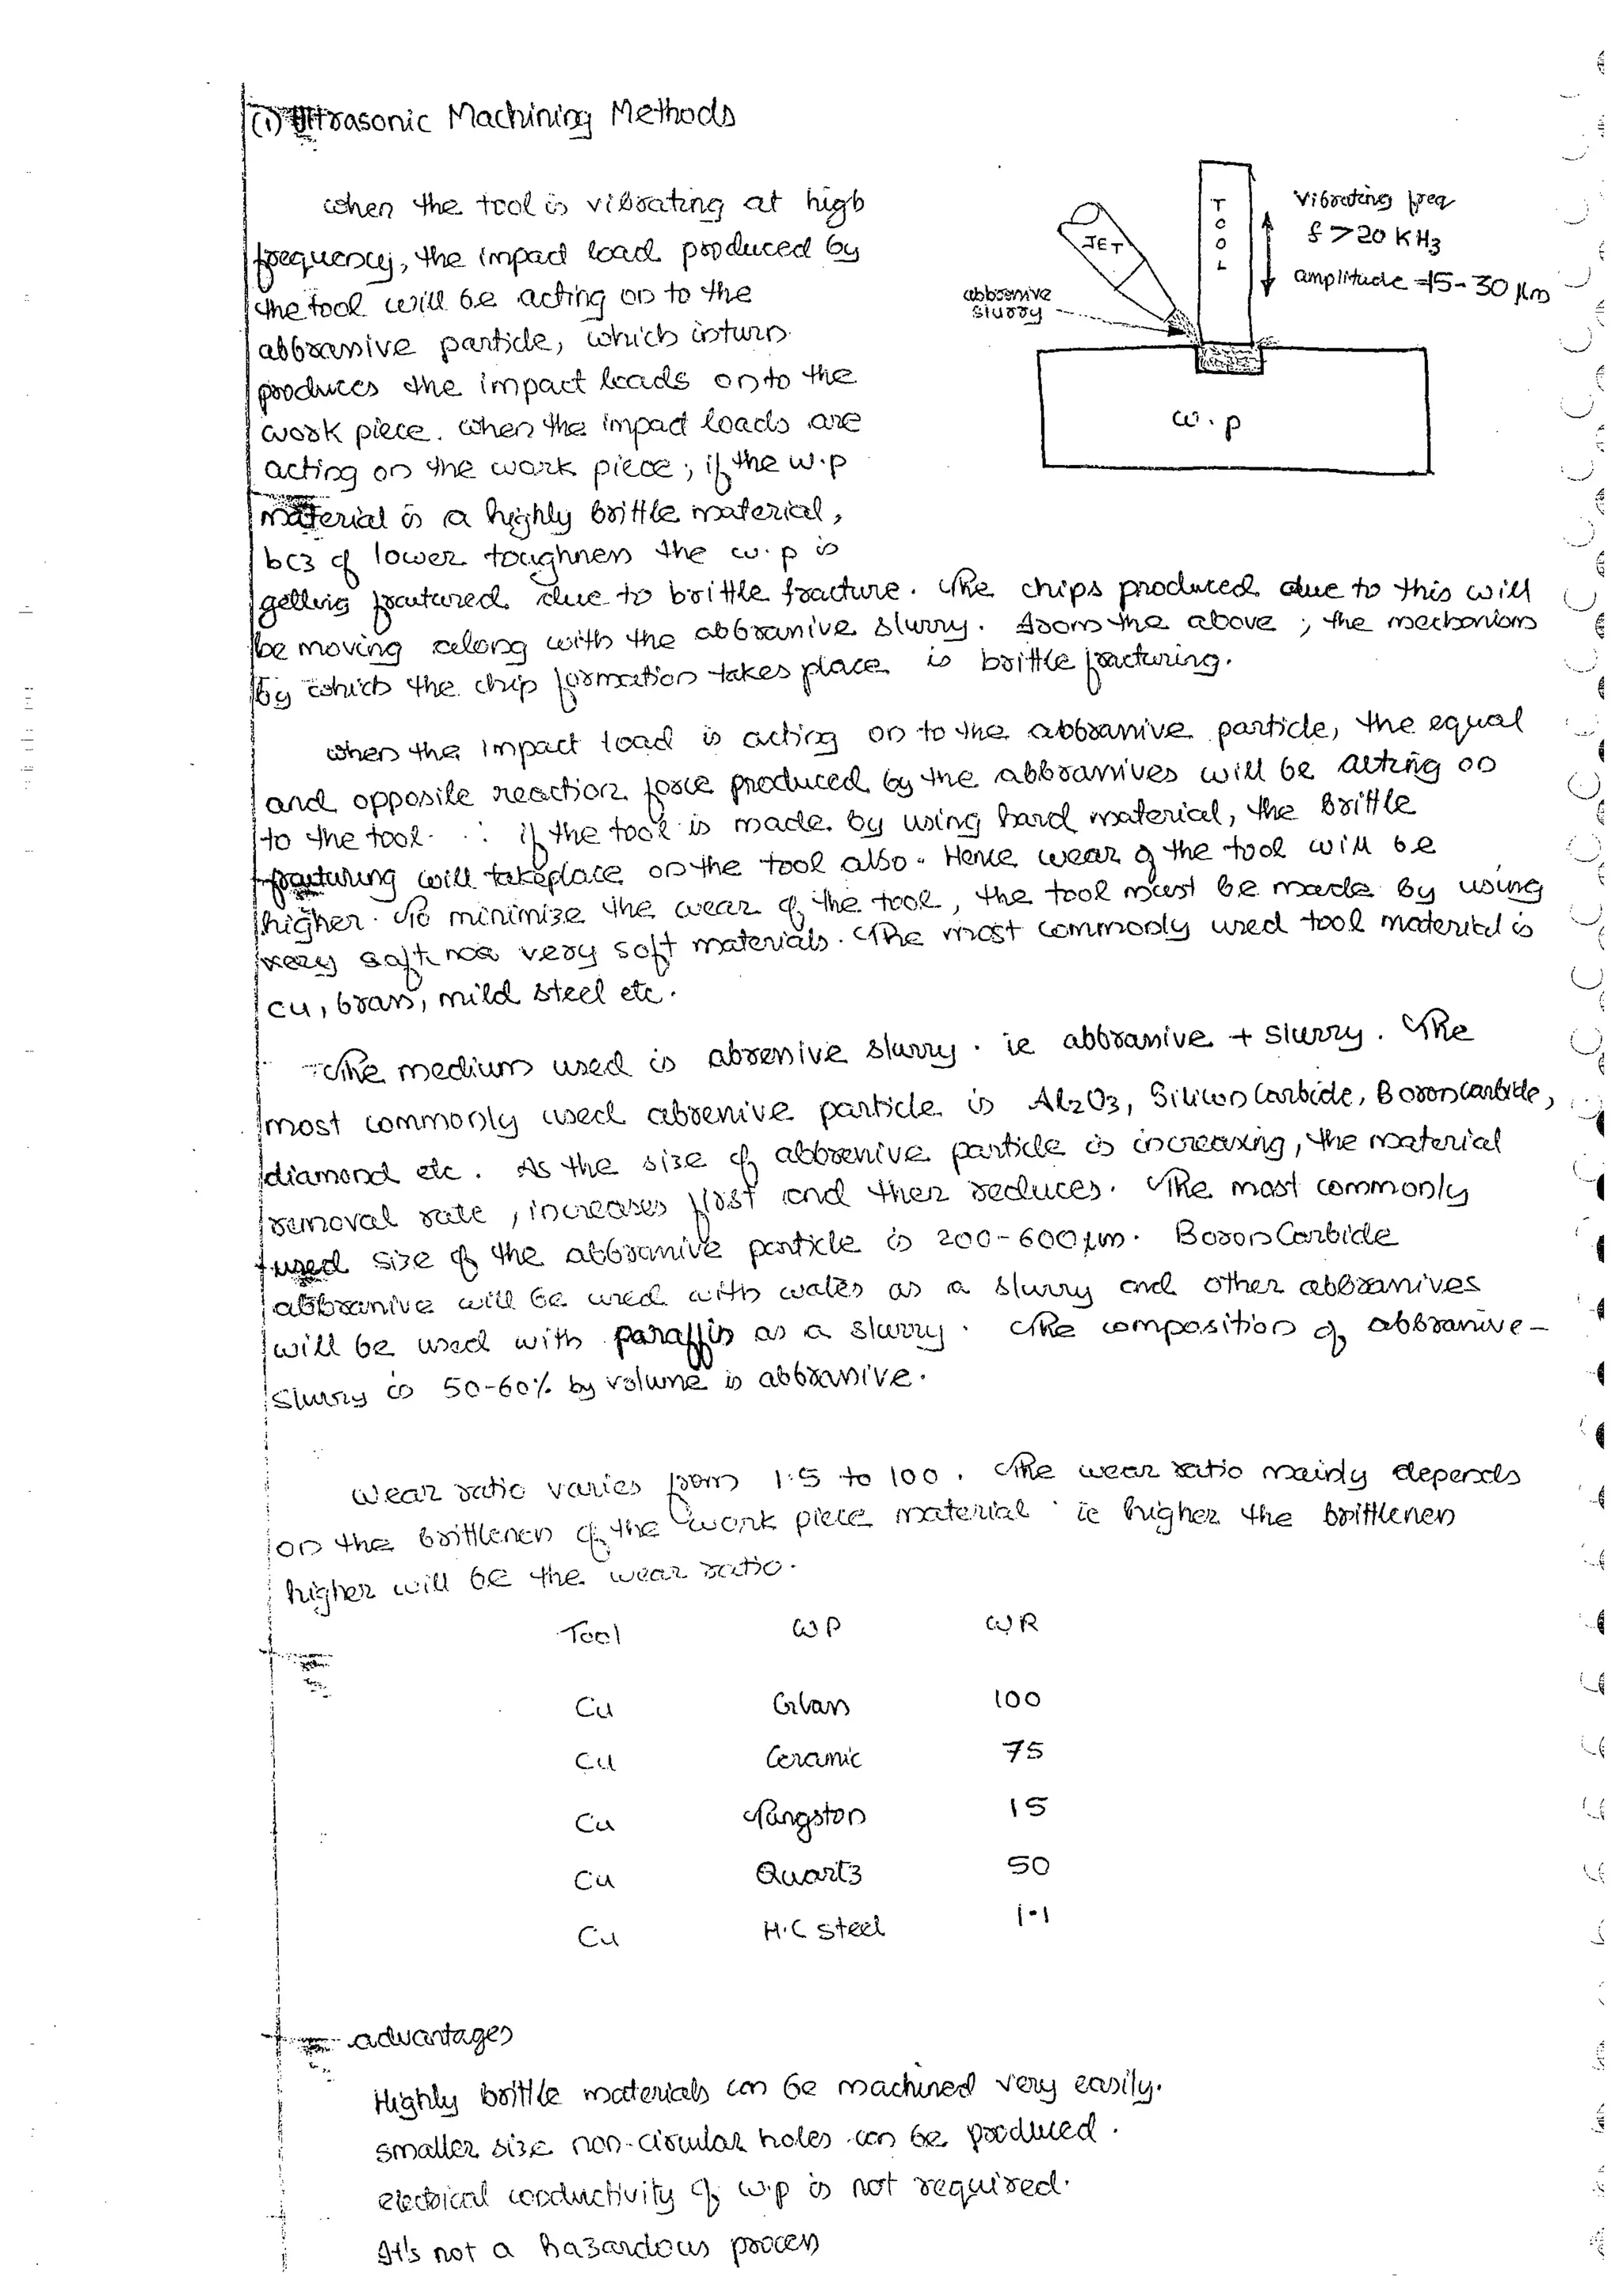 (i) Ultrasonic Machining Methods
when the tool is vibrating at high
frequency, the impact load produced by
the tool will be acting on to the
abbrassive particle, which inturn
produces the impact loads onto the
work piece. when the impact loads are
acting on the work piece; if the w.p
material is a highly brittle material,
bcz of lower toughness the w.p is
getting fractured due to brittle fracture. The chips produced due to this will
be moving along with the abbrassive slurry. from the above, the mechanism
by which the chip formation takes place is brittle fracturing.
TOOL
JET
abbrassive
slurry
vibrating freq
f > 20 KHz
amplitude = 15-30 μm
w.p
when the impact load is acting on to the abbrassive particle, the equal
and opposite reaction force produced by the abbrassives will be acting on
to the tool. ∴ if the tool is made by using hard material, the brittle
fracturing will takeplace on the tool also. Hence wear of the tool will be
higher. To minimize the wear of the tool, the tool must be made by using
very soft materials. The most commonly used tool material is
cu, brass, mild steel etc.
The medium used is abrassive slurry. ie abbrassive + slurry. The
most commonly used abrassive particle is Al2O3, Silicon Carbide, Boron carbide,
diamond etc. As the size of abbrassive particle is increasing, the material
removal rate, increases first and then reduces. The most commonly
used size of the abbrassive particle is 200-600 μm. Boron Carbide
abbrassive will be used with water as a slurry and other abbrassives
will be used with paraffin as a slurry. The composition of abbrassive-
slurry is 50-60% by volume is abbrassive.
wear ratio varies from 1.5 to 100. The wear ratio mainly depends
on the brittleness of the work piece material ie higher the brittleness
higher will be the wear ratio.
Tool WP WR
Cu Glass 100
Cu Ceramic 75
Cu Tungston 15
Cu Quartz 50
Cu H.C steel 1.1
advantages
Highly brittle materials can be machined very easily.
smaller size non-circular holes can be produced.
electrical conductivity of w.p is not required.
It's not a hazardous process